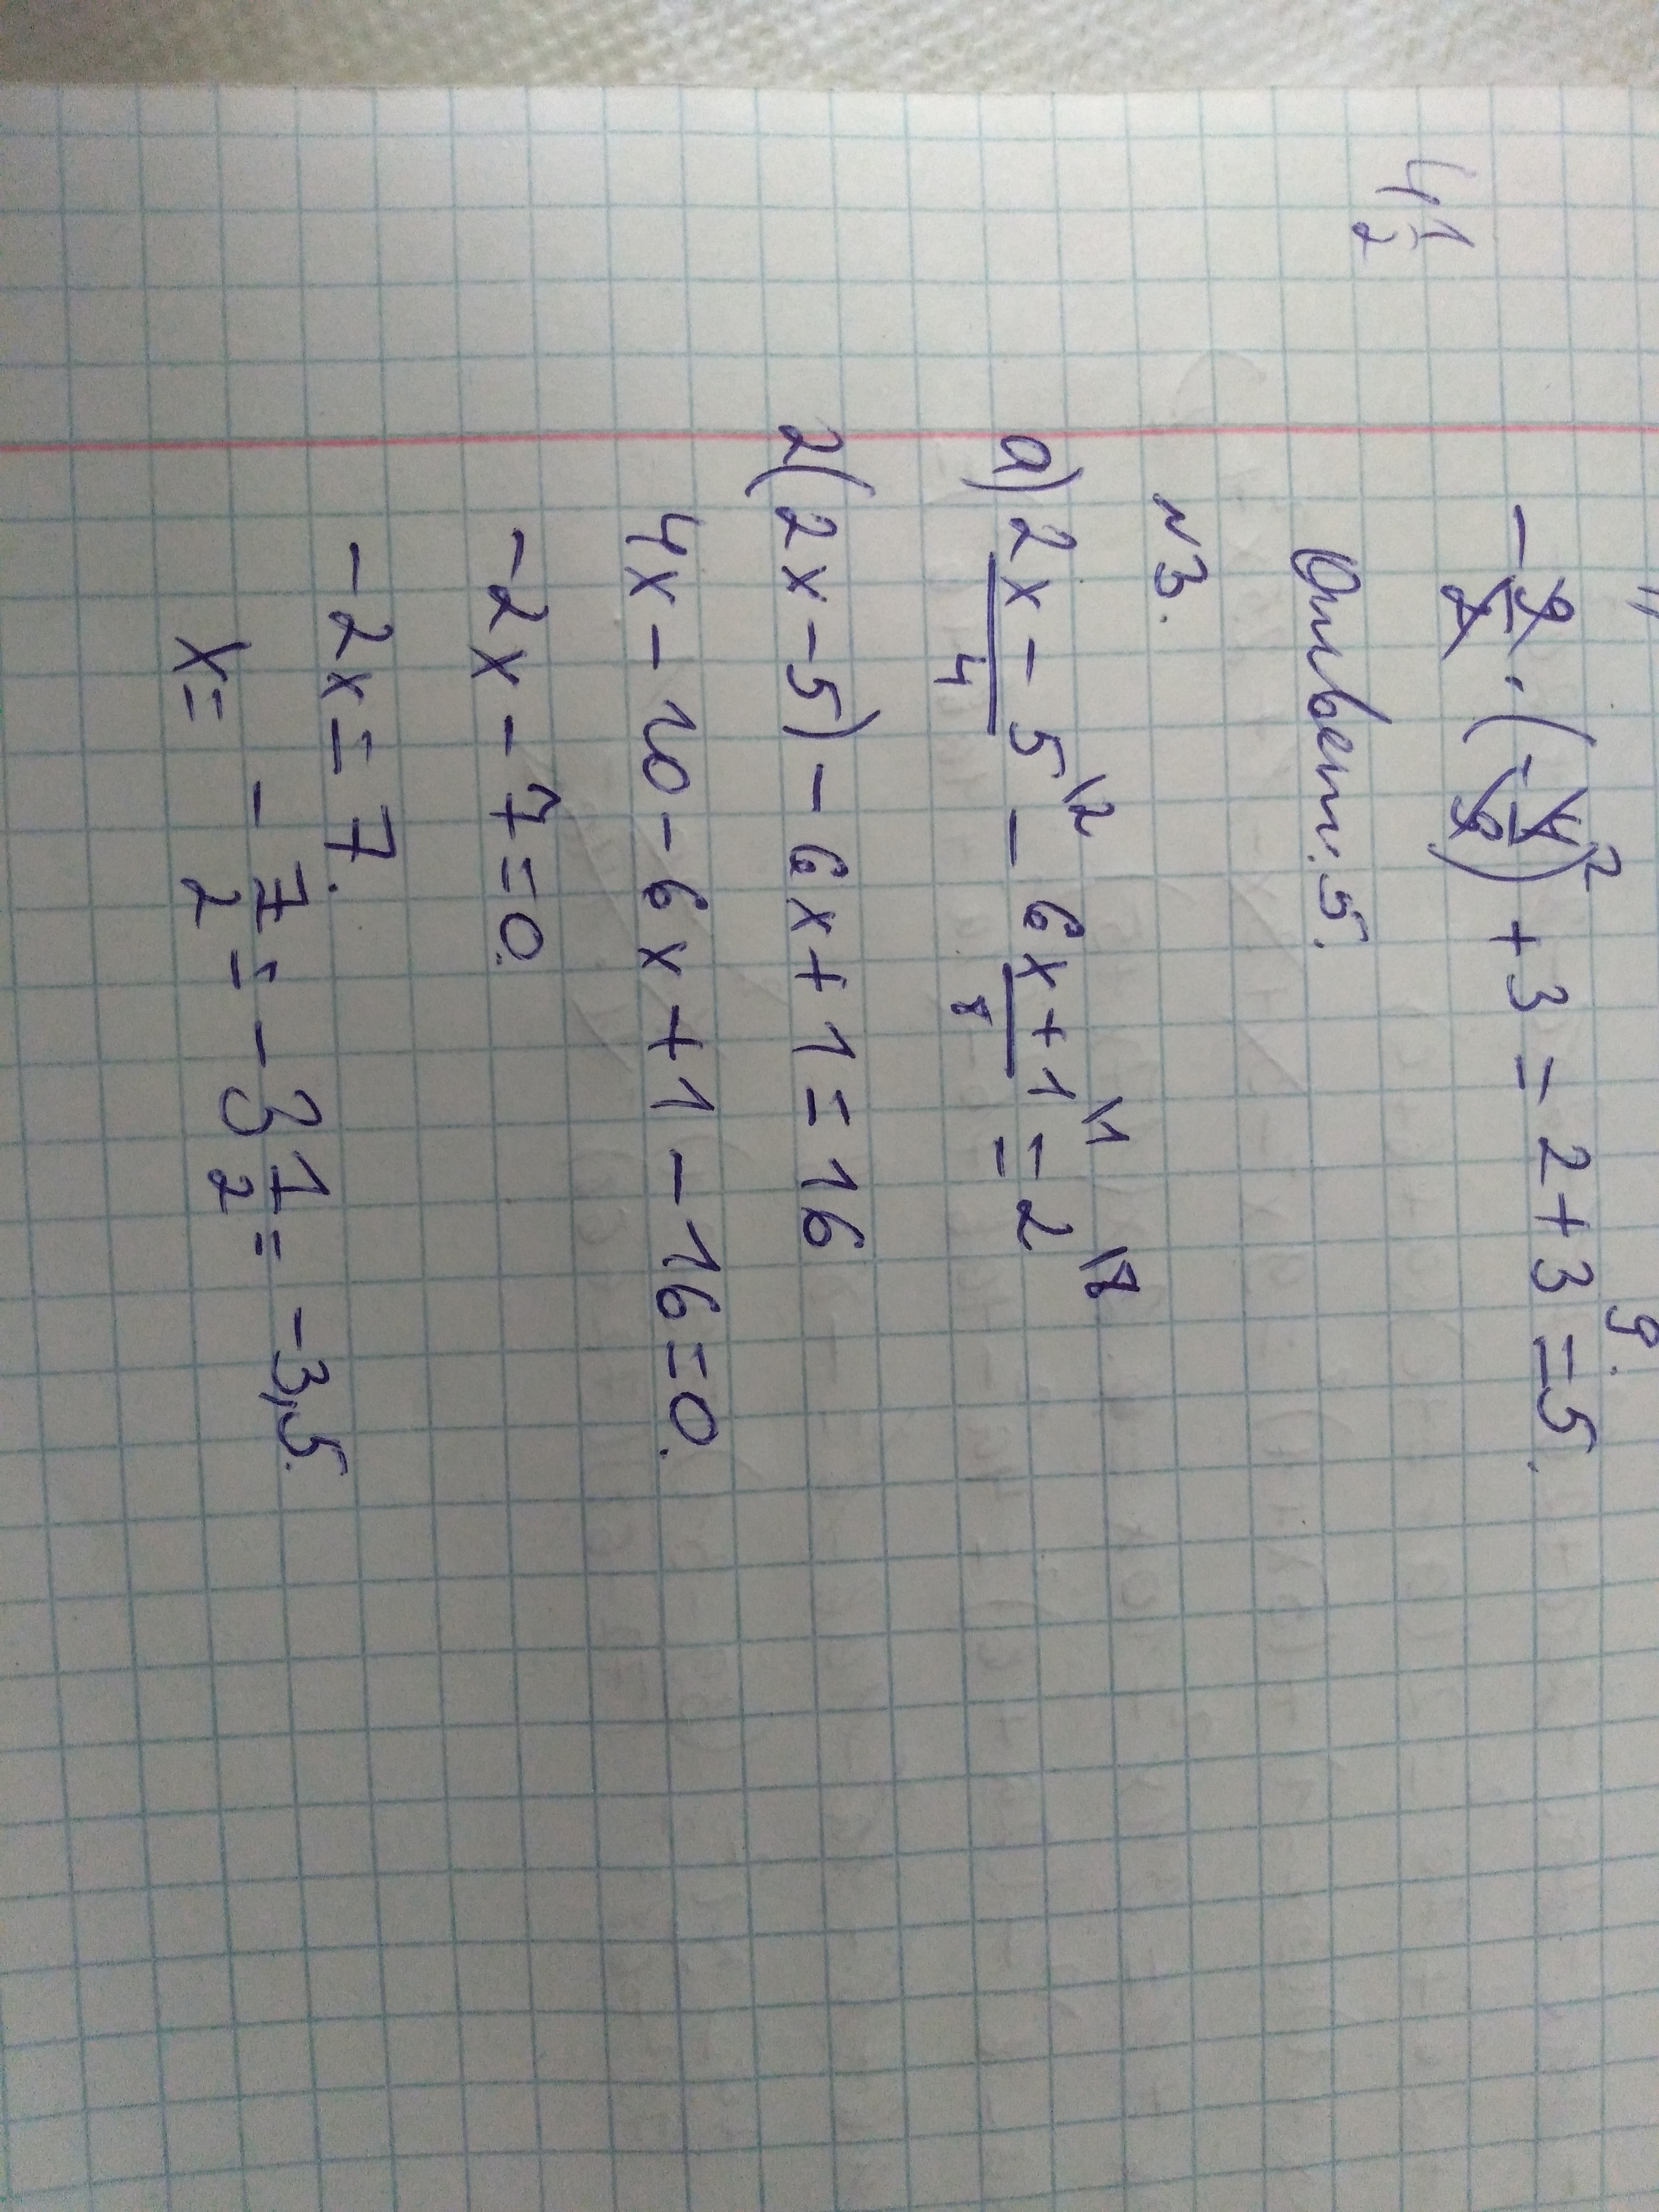 4 1/2
-9/2 · (-4/9) + 3 = 2 + 3 = 5.
Ответ: 5.
N 3.
а) (2x - 5)/4 \2 - (6x + 1)/8 \1 = 2 \8
2(2x - 5) - 6x + 1 = 16
4x - 10 - 6x + 1 - 16 = 0.
-2x - 7 = 0.
-2x = 7.
x = -7/2 = -3 1/2 = -3,5.